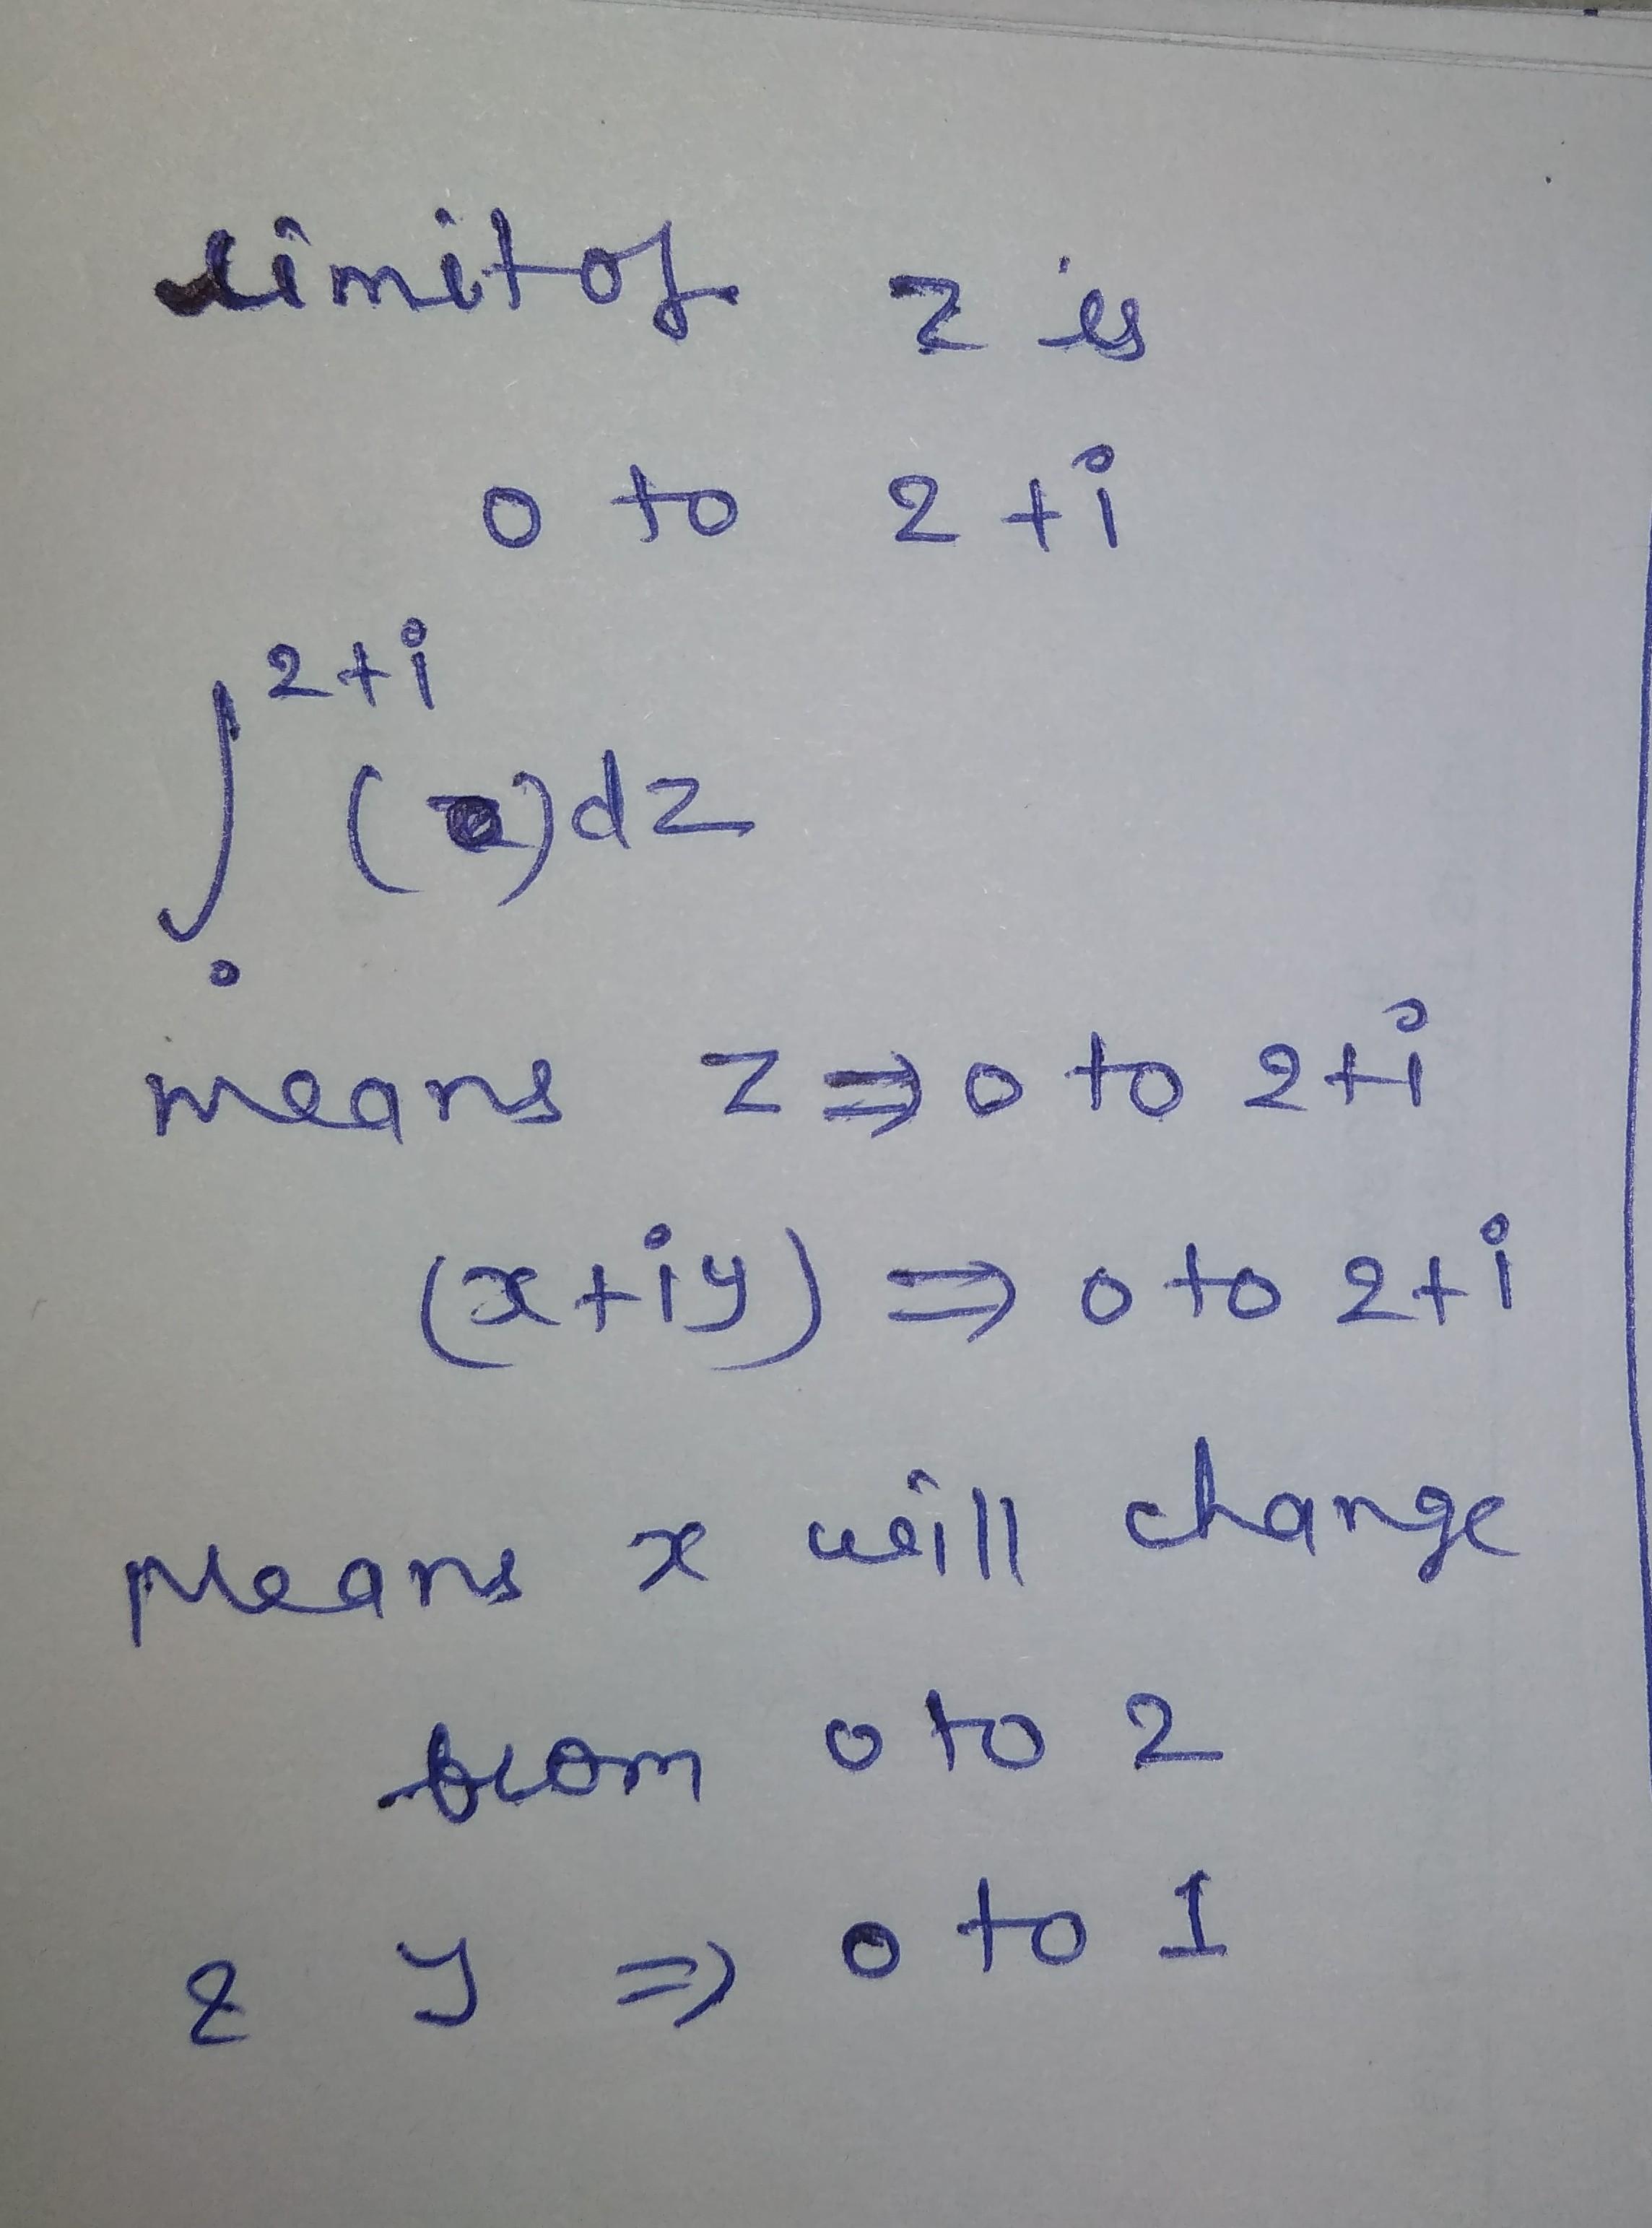 limit of z is
0 to 2+i
2+i
∫ ( )dz
0
means z ⇒ 0 to 2+i
(x+iy) ⇒ 0 to 2+i
Means x will change
from 0 to 2
& y ⇒ 0 to 1